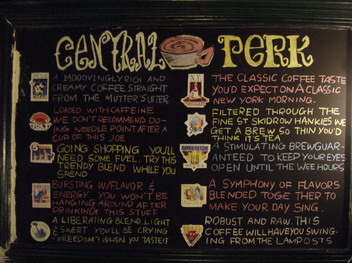 CENTRAL PERK
A MOOOVINGLY RICH AND
CREAMY COFFEE STRAIGHT
FROM THE MUTTER SUITER
LOADED WITH CAFFEINE.
WE DON'T RECOMMEND DO-
ING NEEDLE POINT AFTER A
CUP OF THIS JOE
GOING SHOPPING YOU'LL
NEED SOME FUEL. TRY THIS
TRENDY BLEND WHILE YOU
SPEND
BURSTING W/FLAVOR &
ENERGY YOU WON'T BE
HANGING AROUND AFTER
DRINKING THIS STUFF
A LIBERATING BLEND, LIGHT
& SWEET YOU'LL BE CRYING
"FREEDOM"! WHEN YOU TASTE IT
THE CLASSIC COFFEE TASTE
YOU'D EXPECT ON A CLASSIC
NEW YORK MORNING.
FILTERED THROUGH THE
FINEST SKIDROW HANKIES WE
GET A BREW SO THIN YOU'D
THINK ITS TEA
A STIMULATING BREW GUAR-
ANTEED TO KEEP YOUR EYES
OPEN UNTIL THE WEE HOURS
A SYMPHONY OF FLAVORS
BLENDED TOGETHER TO
MAKE YOUR DAY SING.
ROBUST AND RAW. THIS
COFFEE WILL HAVE YOU SWING-
ING FROM THE LAMPOSTS